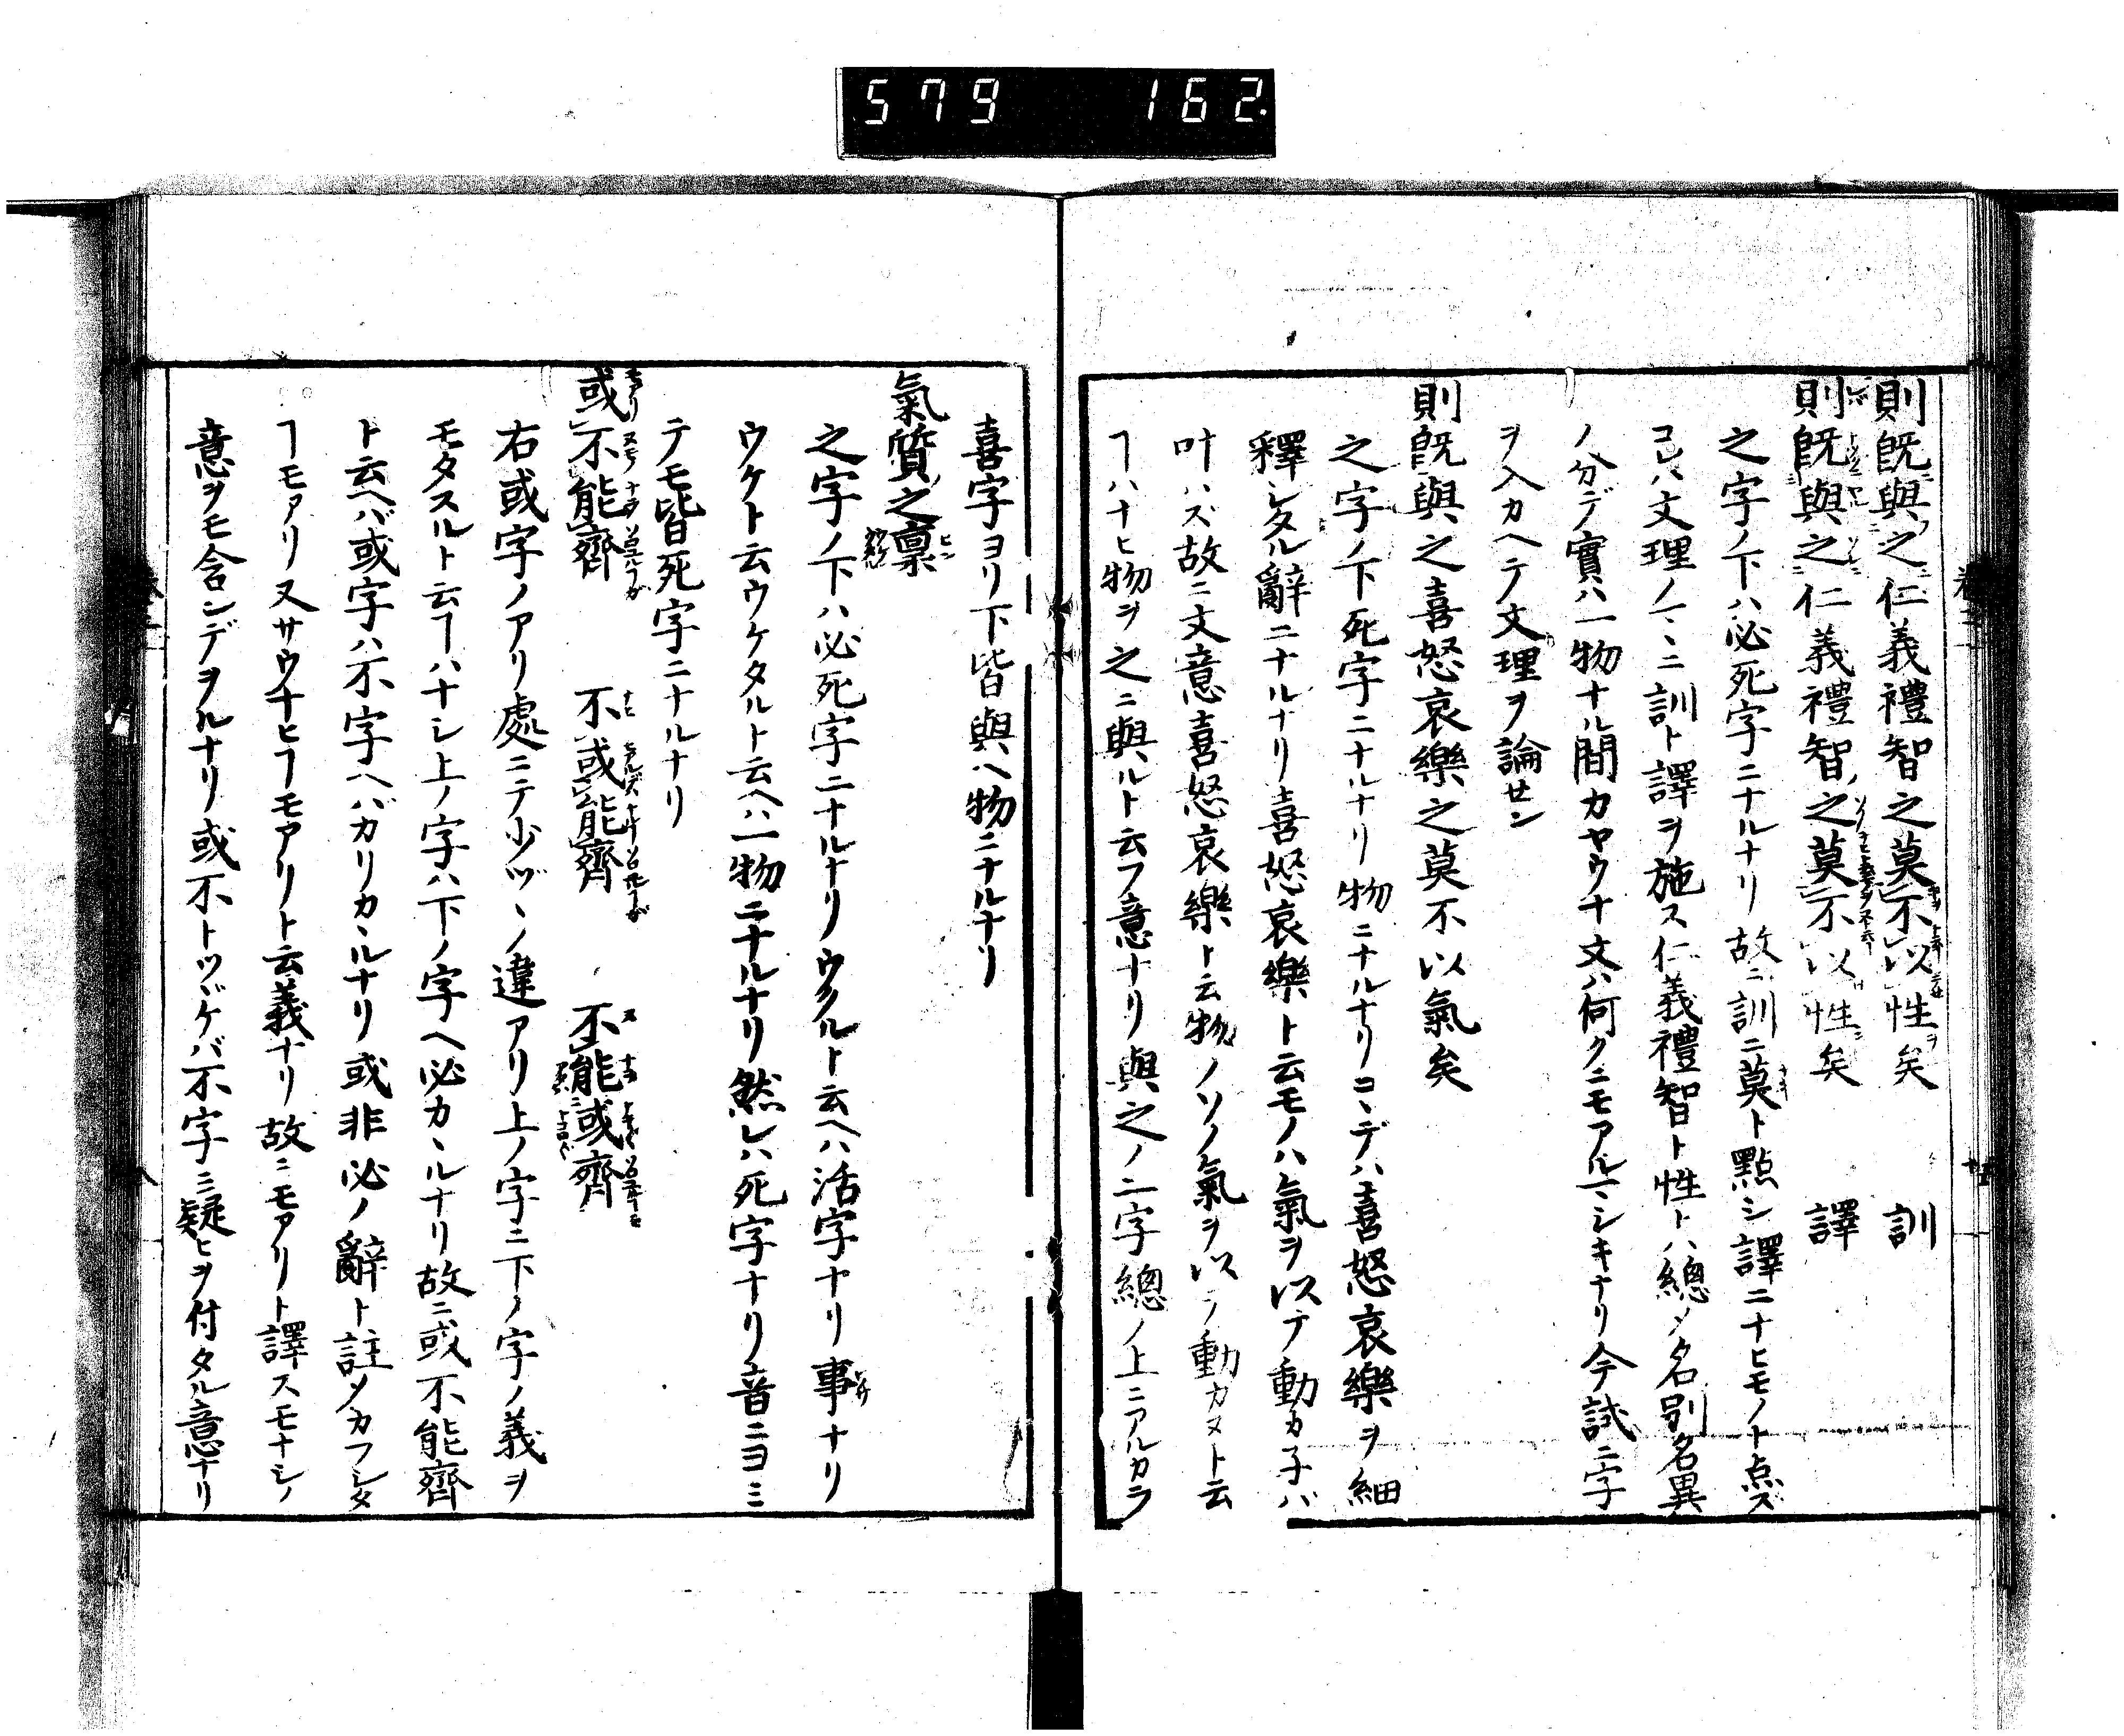 579 162.
則既與之仁義禮智之莫不以性矣 訓
則既與之仁義禮智之莫不以性矣 譯
之字ノ下ハ必死字ニナルナリ故ニ訓ニ莫ト點シ譯ニナヒモノト点ズ
コレハ文理ノ一ミニ訓ト譯ヲ施ス仁義禮智ト性トハ總ノ名別名異
ノ分デ實ハ一物ナル間カヤウナ文ハ何クニモアルヿシキナリ今試ニ字
ヲ入カヘテノ文理ヲ論セン
則既與之喜怒哀樂之莫不以氣矣
之字ノ下死字ニナルナリ物ニナルナリコヽデハ喜怒哀樂ヲ細
釋シタル辭ニナルナリ喜怒哀樂ト云モノハ氣ヲ以テ動カ子バ
叶ハズ故ニ文意喜怒哀樂ト云物ノソノ氣ヲ以テ動カヌト云
ヿハナヒ物ヲ之ニ與ルト云フ意ナリ與之ノ二字總ノ上ニアルカラ
喜字ヨリ下皆與ヘ物ニナルナリ
氣質之稟
之字ノ下ハ必死字ニナルナリウクルト云ヘハ活字ナリ事ナリ
ウケト云ウケタルト云ヘハ一物ニナルナリ然レハ死字ナリ音ニヨミ
テモ皆死字ニナルナリ
或不能齊 不或能齊 不能或齊
右或字ノアリ處ニテ少ヅヽノ違アリ上ノ字ニ下ノ字ノ義ヲ
モタスルト云ヿハナシ上ノ字ハ下ノ字ヘ必カヽルナリ故ニ或不能齊
ト云ヘバ或字ハ不字ヘバカリカヽルナリ或非必ノ辭ト註ソカフシタ
ヿモアリ又サウナヒヿモアリト云義ナリ故ニモアリト譯スモナシノ
意ヲモ含ンデヲルナリ或不トツヾケバ不字ニ疑ヒヲ付タル意ナリ